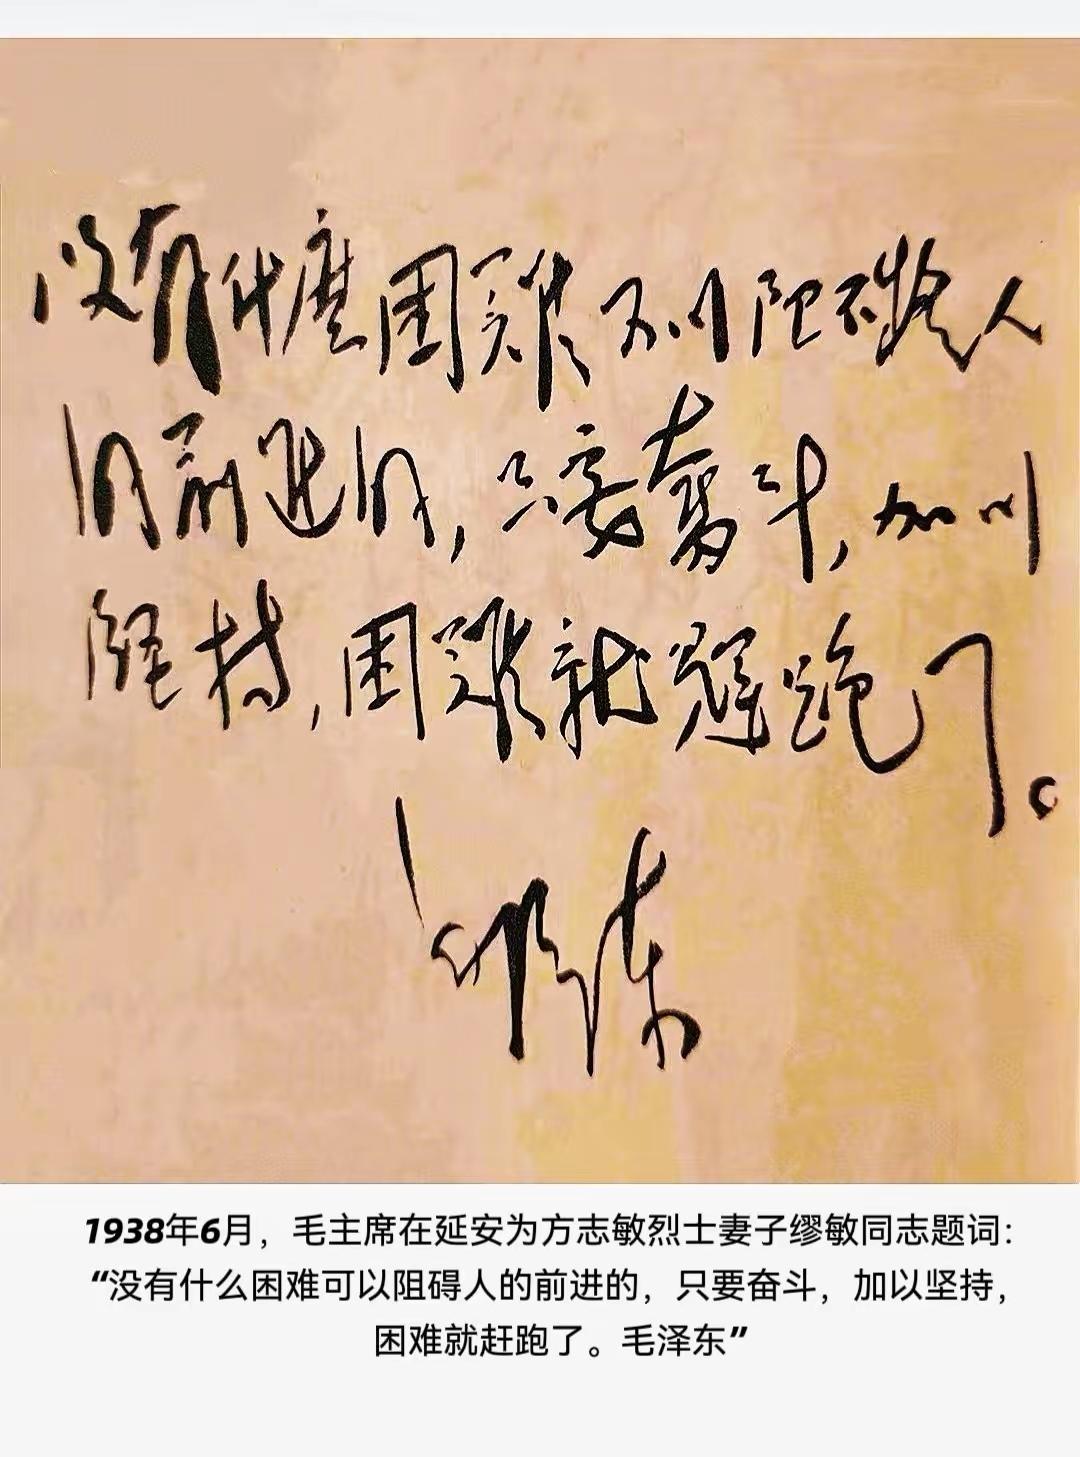 没有什麽困難可以阻碍人
的前进的，只要奮斗，加以
坚持，困難就赶跑了。
毛泽东
1938年6月，毛主席在延安为方志敏烈士妻子缪敏同志题词：
“没有什么困难可以阻碍人的前进的，只要奋斗，加以坚持，
困难就赶跑了。毛泽东”